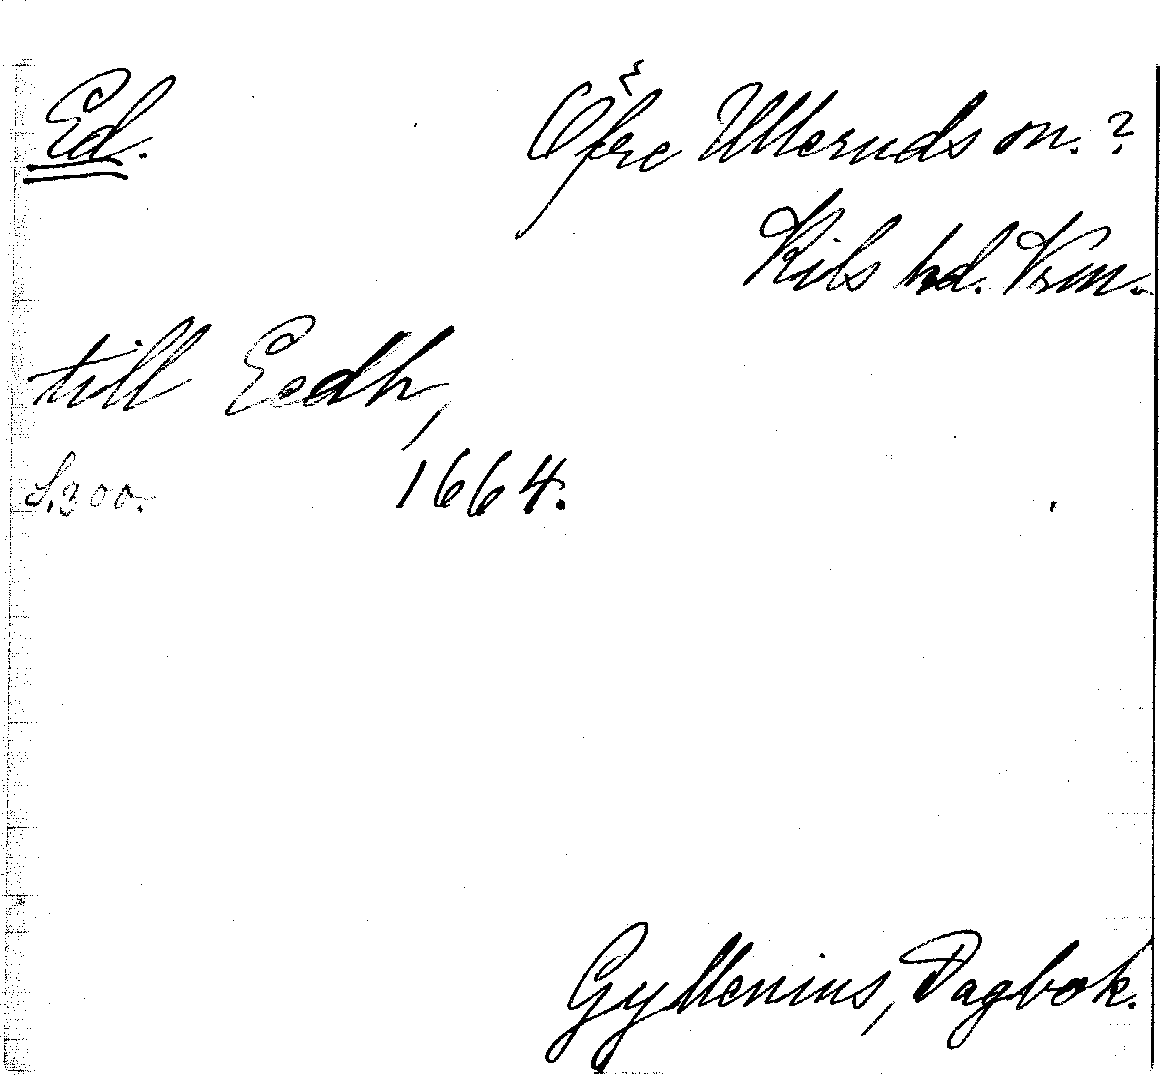 Ed. Öfre Ulleruds sn.?
Kils hd. Vrm.
till Eedh,
S.300. 1664.
Gyllenius, Dagbok.